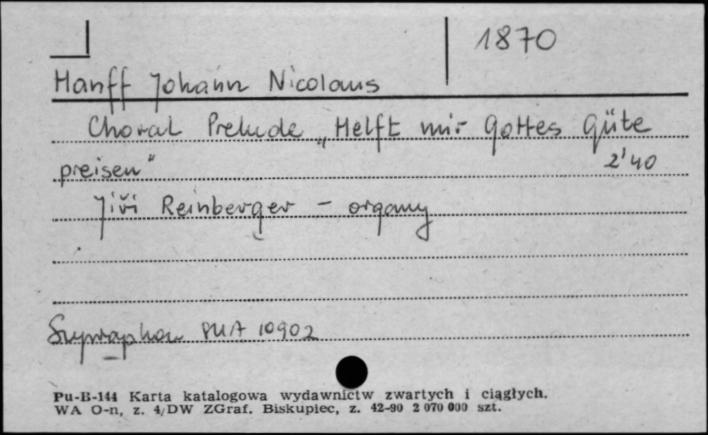 1870
Hanff Johann Nicolaus
Choral Prelude „Helft mir Gottes Güte
preisen" 2'40
Jiři Reinberger - organy
Supraphon PUA 10902
Pu-B-144 Karta katalogowa wydawnictw zwartych i ciągłych.
WA O-n, z. 4/DW ZGraf. Biskupiec, z. 42-90 2 070 000 szt.